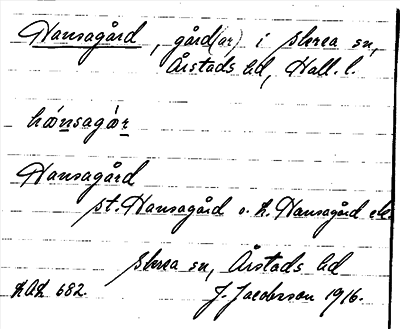 Hansagård, gård(ar) i Skrea sn,
Årstads hd, Hall. l.
hánsagàr
Hansagård
st. Hansagård o. L. Hansagård
Skrea sn, Årstads hd
682. J. Jacobsson 1916.